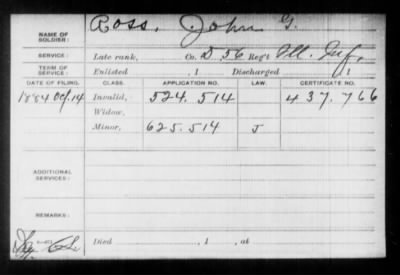 NAME OF SOLDIER: Ross, John G.
SERVICE: Late rank, Co. D, 56 Reg't Ill. Inf.
TERM OF SERVICE: Enlisted , 1 Discharged , 1
DATE OF FILING. CLASS. APPLICATION NO. LAW. CERTIFICATE NO.
1884 Oct. 14 Invalid, 524.514 437.766
Widow,
Minor, 625.514 J
ADDITIONAL SERVICES:
REMARKS:
Died , 1 , at